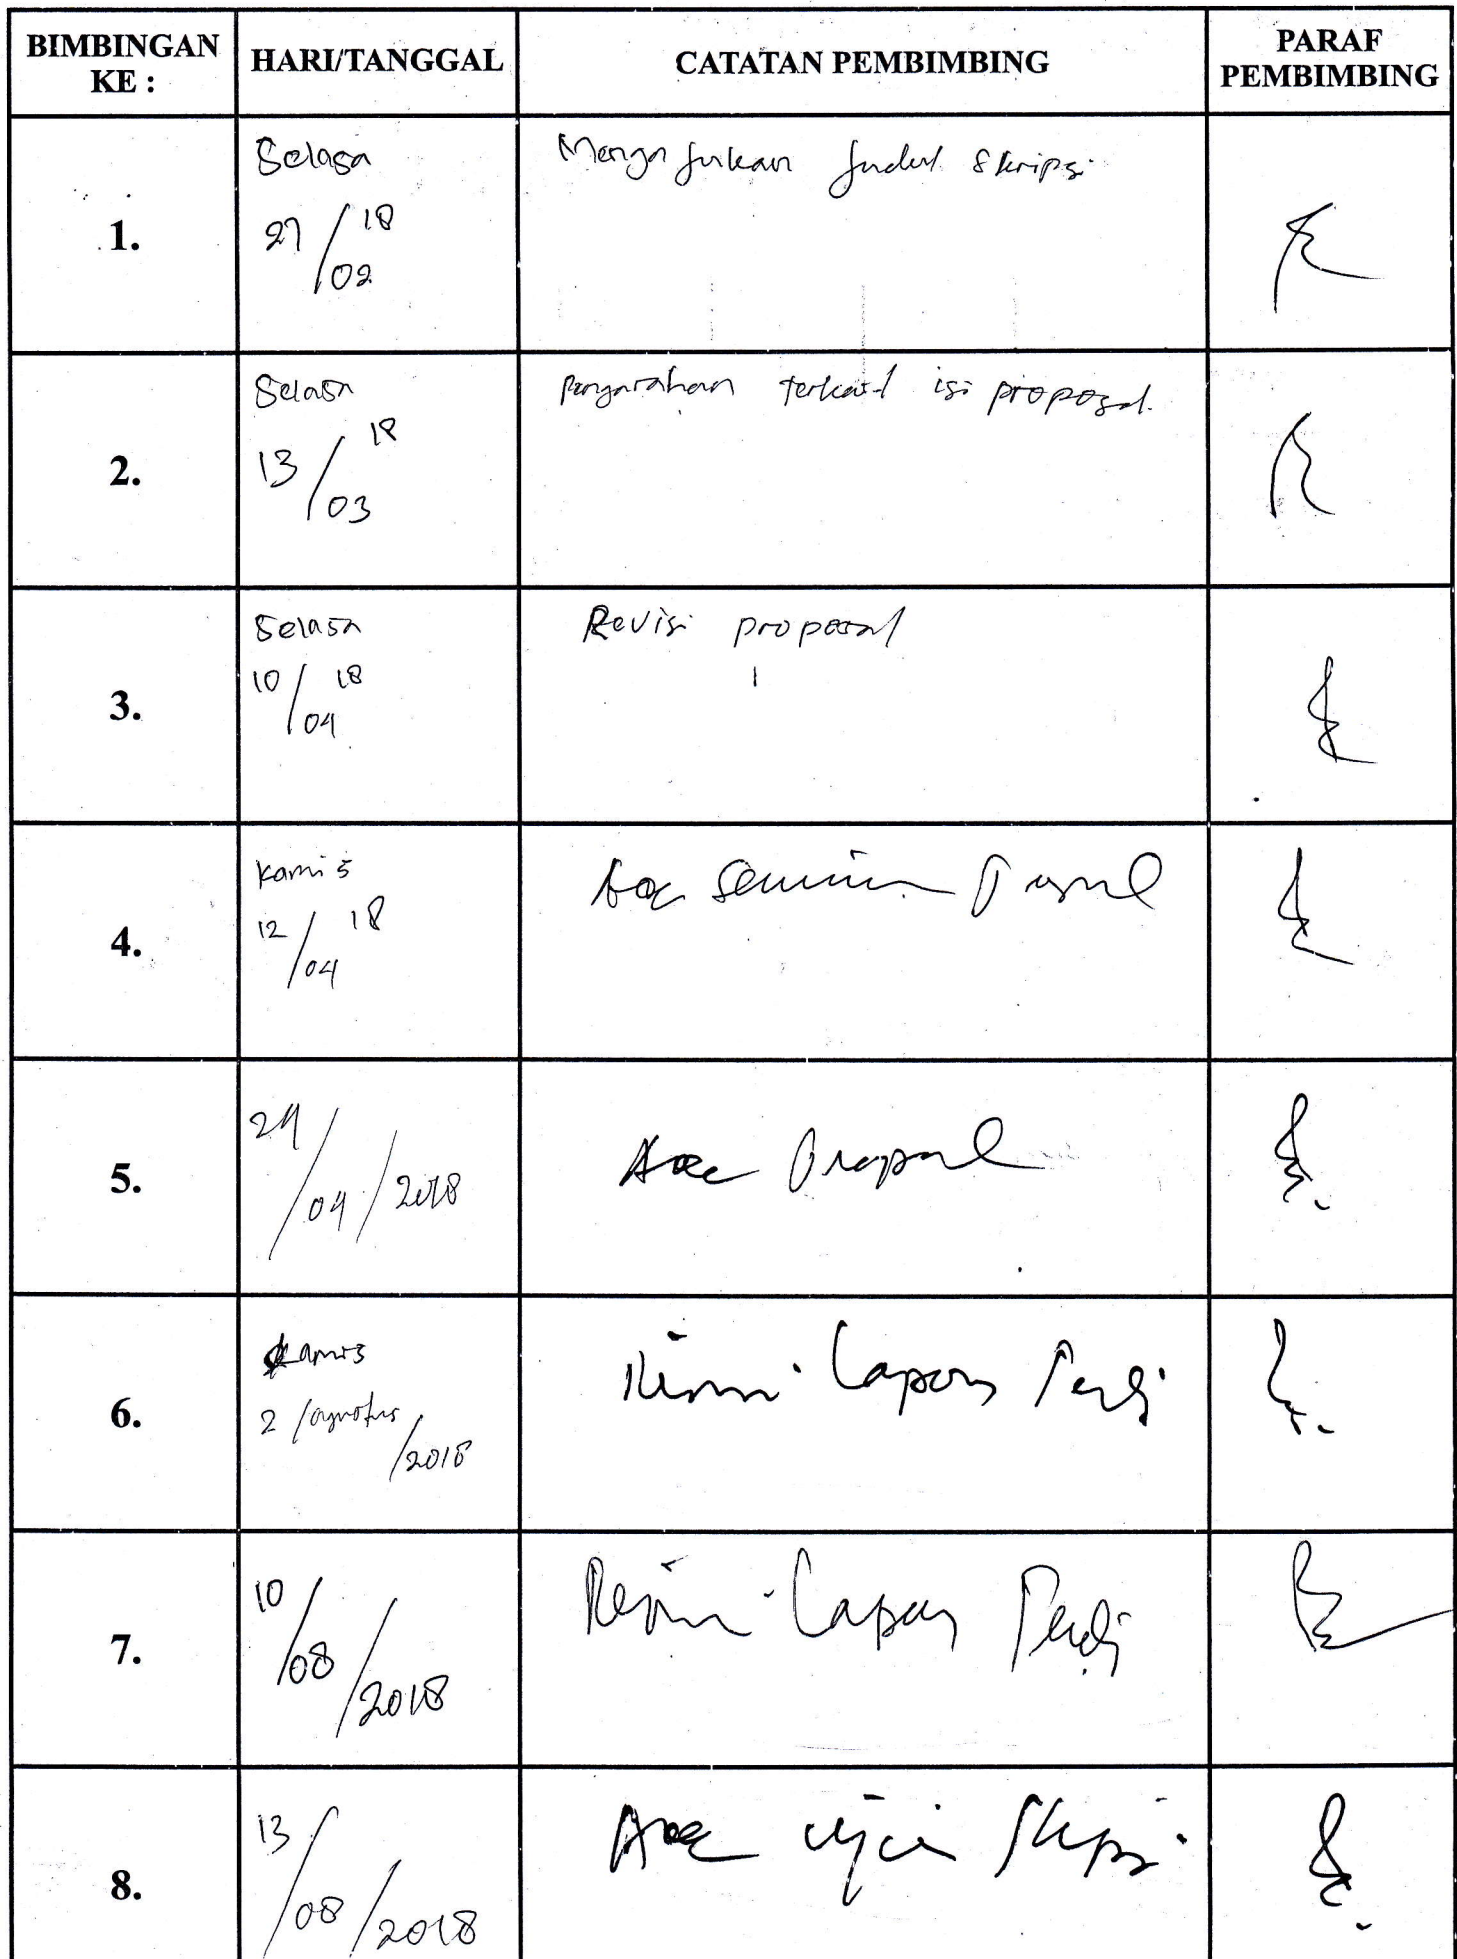 BIMBINGAN KE : HARI/TANGGAL CATATAN PEMBIMBING PARAF PEMBIMBING
1. Selasa 27/02 18 Mengajukan judul skripsi
2. Selasa 13/03 18 Pengarahan terkait isi proposal.
3. Selasa 10/04 18 Revisi proposal
4. Kamis 12/04 18 Acc Seminar Proposal
5. 24/04/2018 Acc Proposal
6. Kamis 2/agustus/2018 Revisi Laporan
7. 10/08/2018 Revisi Laporan
8. 13/08/2018 Acc ujian Skripsi